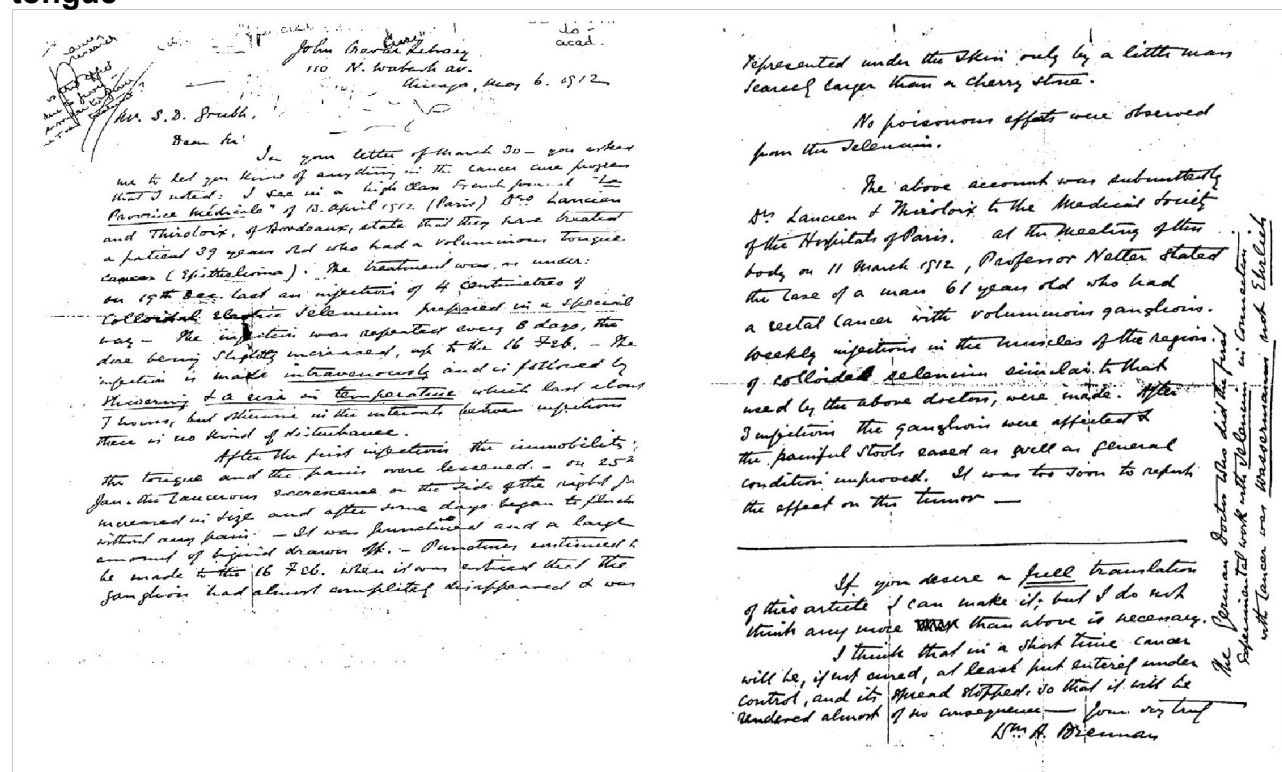 tongue
"Cancer Cure"
to -
acad.
John Crerar Library
110 N. Wabash av.
Chicago, May 6. 1912
Mr. S. D.
Dear Sir:
In your letter of March 30 - you asked
me to let you know of anything in the cancer cure progress
that I noted: I see in a high class French journal "La
Province Médicale" of 13. April 1912 (Paris) Drs Lancien
and Thiroloix, of Bordeaux, state that they have treated
a patient 39 years old who had a voluminous tongue
cancer (Epithelioma). The treatment was as under:
on 19th Dec. last an injection of 4 centimetres of
Colloidal Selenium prepared in a special
way - The injection was repeated every 8 days, the
dose being slightly increased, up to the 16 Feb. - The
injection is made intravenously and is followed by
shivering & a rise in temperature which last about
3 hours, but otherwise in the intervals between injections
there is no kind of disturbance.
After the first injections the immobility
the tongue and the pains were lessened. - on 25th
Jan. the cancerous excrescence on the side of the right
increased in size and after some days began to
without any pain. - It was punctured and a large
amount of liquid drawn off. - Punctures continued to
be made to the 16 Feb. when it was noticed that the
ganglion had almost completely disappeared & was
represented under the skin only by a little mass
scarcely larger than a cherry stone.
No poisonous effects were observed
from the selenium.
The above account was submitted by
Drs Lancien & Thiroloix to the Medical Society
of the Hospitals of Paris. At the meeting of this
body on 11 March 1912, Professor Netter stated
the case of a man 61 years old who had
a rectal cancer with voluminous ganglions.
Weekly injections in the muscles of the region.
of colloidal selenium similar to that
used by the above doctors, were made. After
3 injections the ganglions were affected &
the painful stools eased as well as general
condition improved. It was too soon to report
the effect on the tumor —
If you desire a full translation
of this article I can make it; but I do not
think any more than above is necessary.
I think that in a short time cancer
will be, if not cured, at least put entirely under
control, and its spread stopped, so that it will be
rendered almost of no consequence — Yours very truly
Wm A. Brennan
The German Doctor who did the first
experimental work with Selenium in connection
with cancer was Wassermann not Ehrlich